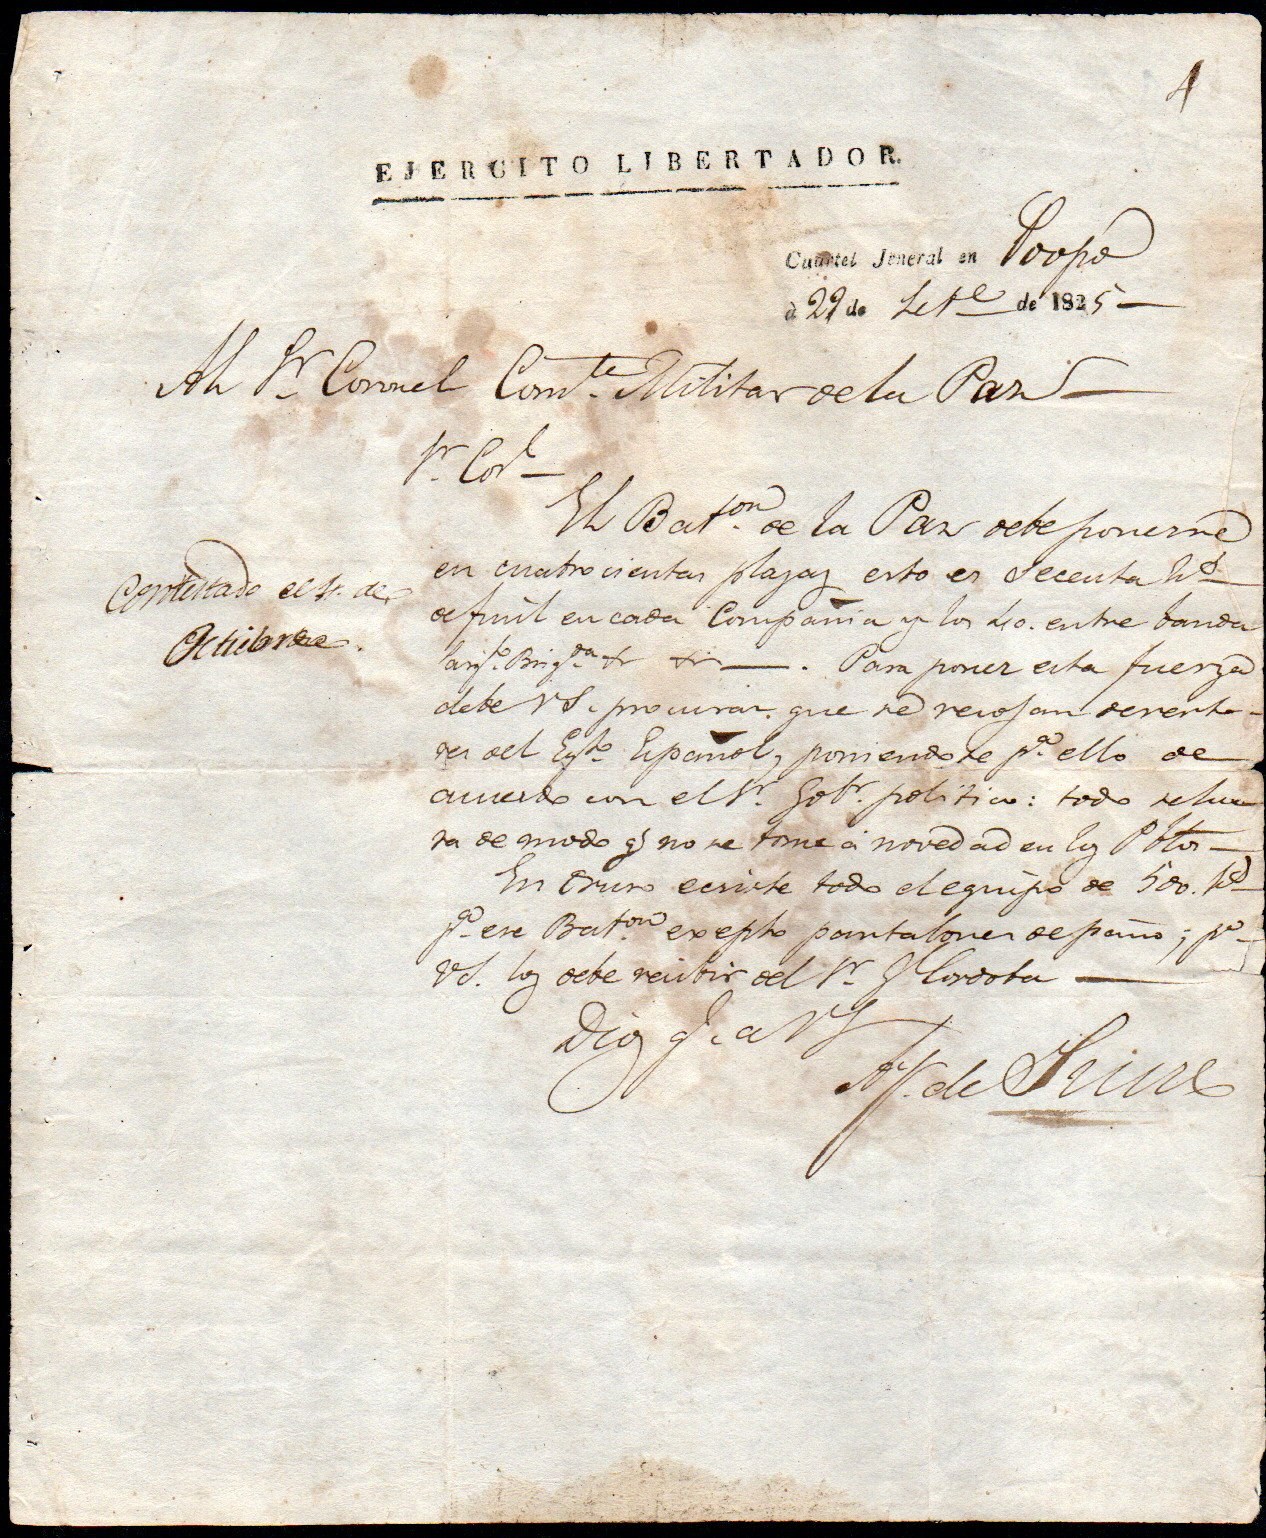 4
EJERCITO LIBERTADOR.
Cuartel Jeneral en Poopó
à 29 de Set.e de 1825
Al Sr Coronel Com.te Militar de la Paz
Sr. Corl
El Bat.on de la Paz debe ponerse
en cuatrocientas plazas esto es Secenta hs
de fusil en cada Compañia y los 40. entre banda
Sarj.to Brig.da &
. Para poner esta fuerza
debe VS. procurar que se recojan deserto-
res del Egto. Español, poniendose p.a ello de
acuerdo con el Sr. Gobr. politico: todo se hu
ra de modo q no se tome á novedad en los Pblos
En Oruro ecsiste todo el equipo de 500. hs
p.a ese Bat.on exepto pantalones de paño; p.o
VS. los debe recibir del Sr. G Cordoba
Dios g. a VS
A. J. de Sucre
Contestado el 4. de
Octubre.